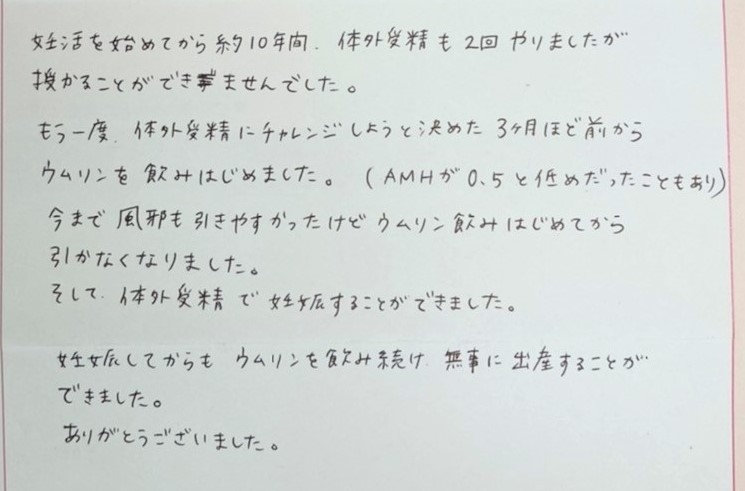 妊活を始めてから約10年間、体外受精も2回やりましたが
授かることができませんでした。
もう一度、体外受精にチャレンジしようと決めた3ヶ月ほど前から
ウムリンを飲みはじめました。(AMHが0.5と低めだったこともあり)
今まで風邪も引きやすかったけどウムリン飲みはじめてから
引かなくなりました。
そして、体外受精で妊娠することができました。
妊娠してからもウムリンを飲み続け、無事に出産することが
できました。
ありがとうございました。